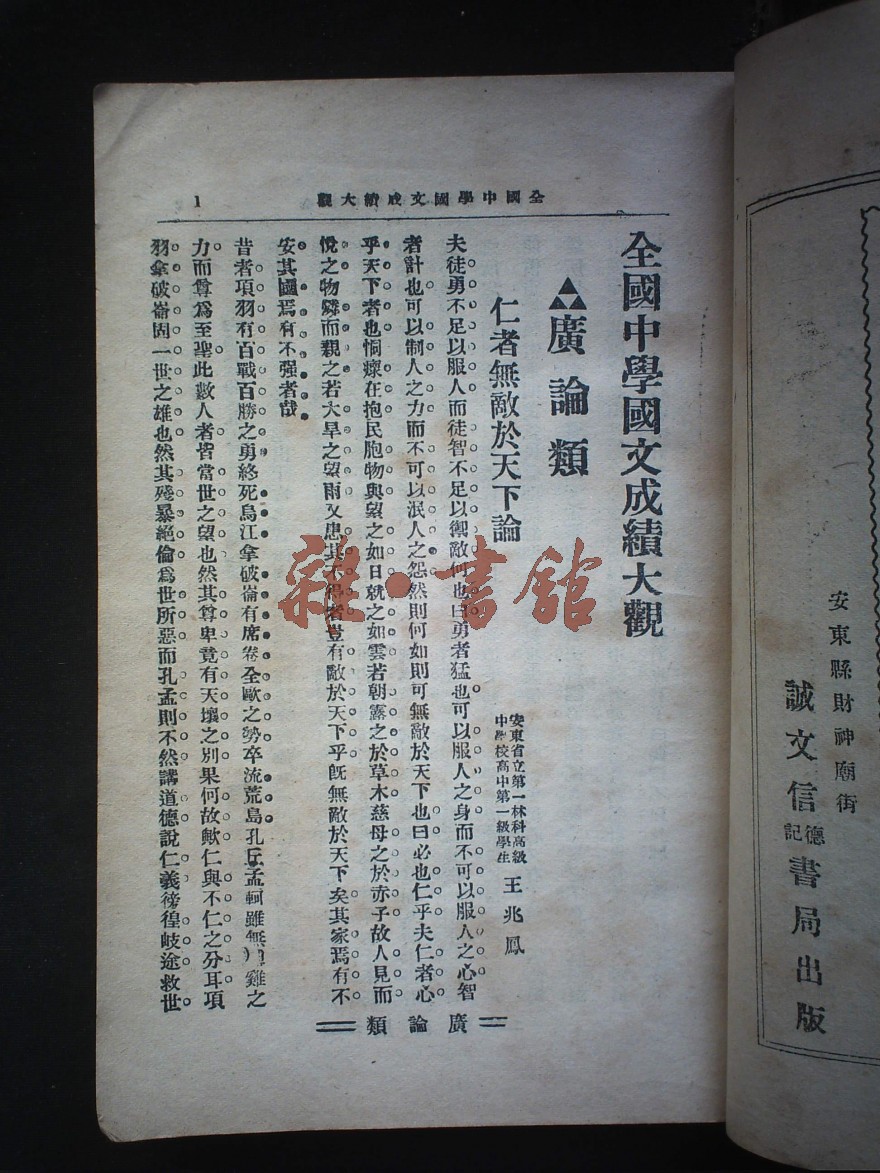 安東縣財神廟街
誠文信德記書局出版
全國中學國文成績大觀
1
全國中學國文成績大觀
廣論類
仁者無敵於天下論
安東省立第一林科高級
中學校高中第一級學生
王兆鳳
夫徒勇不足以服人而徒智不足以禦敵何也曰勇者猛也可以服人之身而不可以服人之心智
者計也可以制人之力而不可以泯人之怨然則何如則可無敵於天下也曰必也仁乎夫仁者心
乎天下者也恫瘝在抱民胞物與望之如日就之如雲若朝露之於草木慈母之於赤子故人見而
悅之物鄰而親之若大旱之望雨又患其不得者豈有敵於天下乎既無敵於天下矣其家焉有不
安其國焉有不强者哉
昔者項羽有百戰百勝之勇終死烏江拿破崙有席卷全歐之勢卒流荒島孔丘孟軻雖無雞之
力而尊爲至聖此數人者皆當世之望也然其尊卑竟有天壤之別果何故歟仁與不仁之分耳項
羽拿破崙固一世之雄也然其殘暴絕倫爲世所惡而孔孟則不然講道德說仁義徬徨歧途救世
廣論類
雜·書館